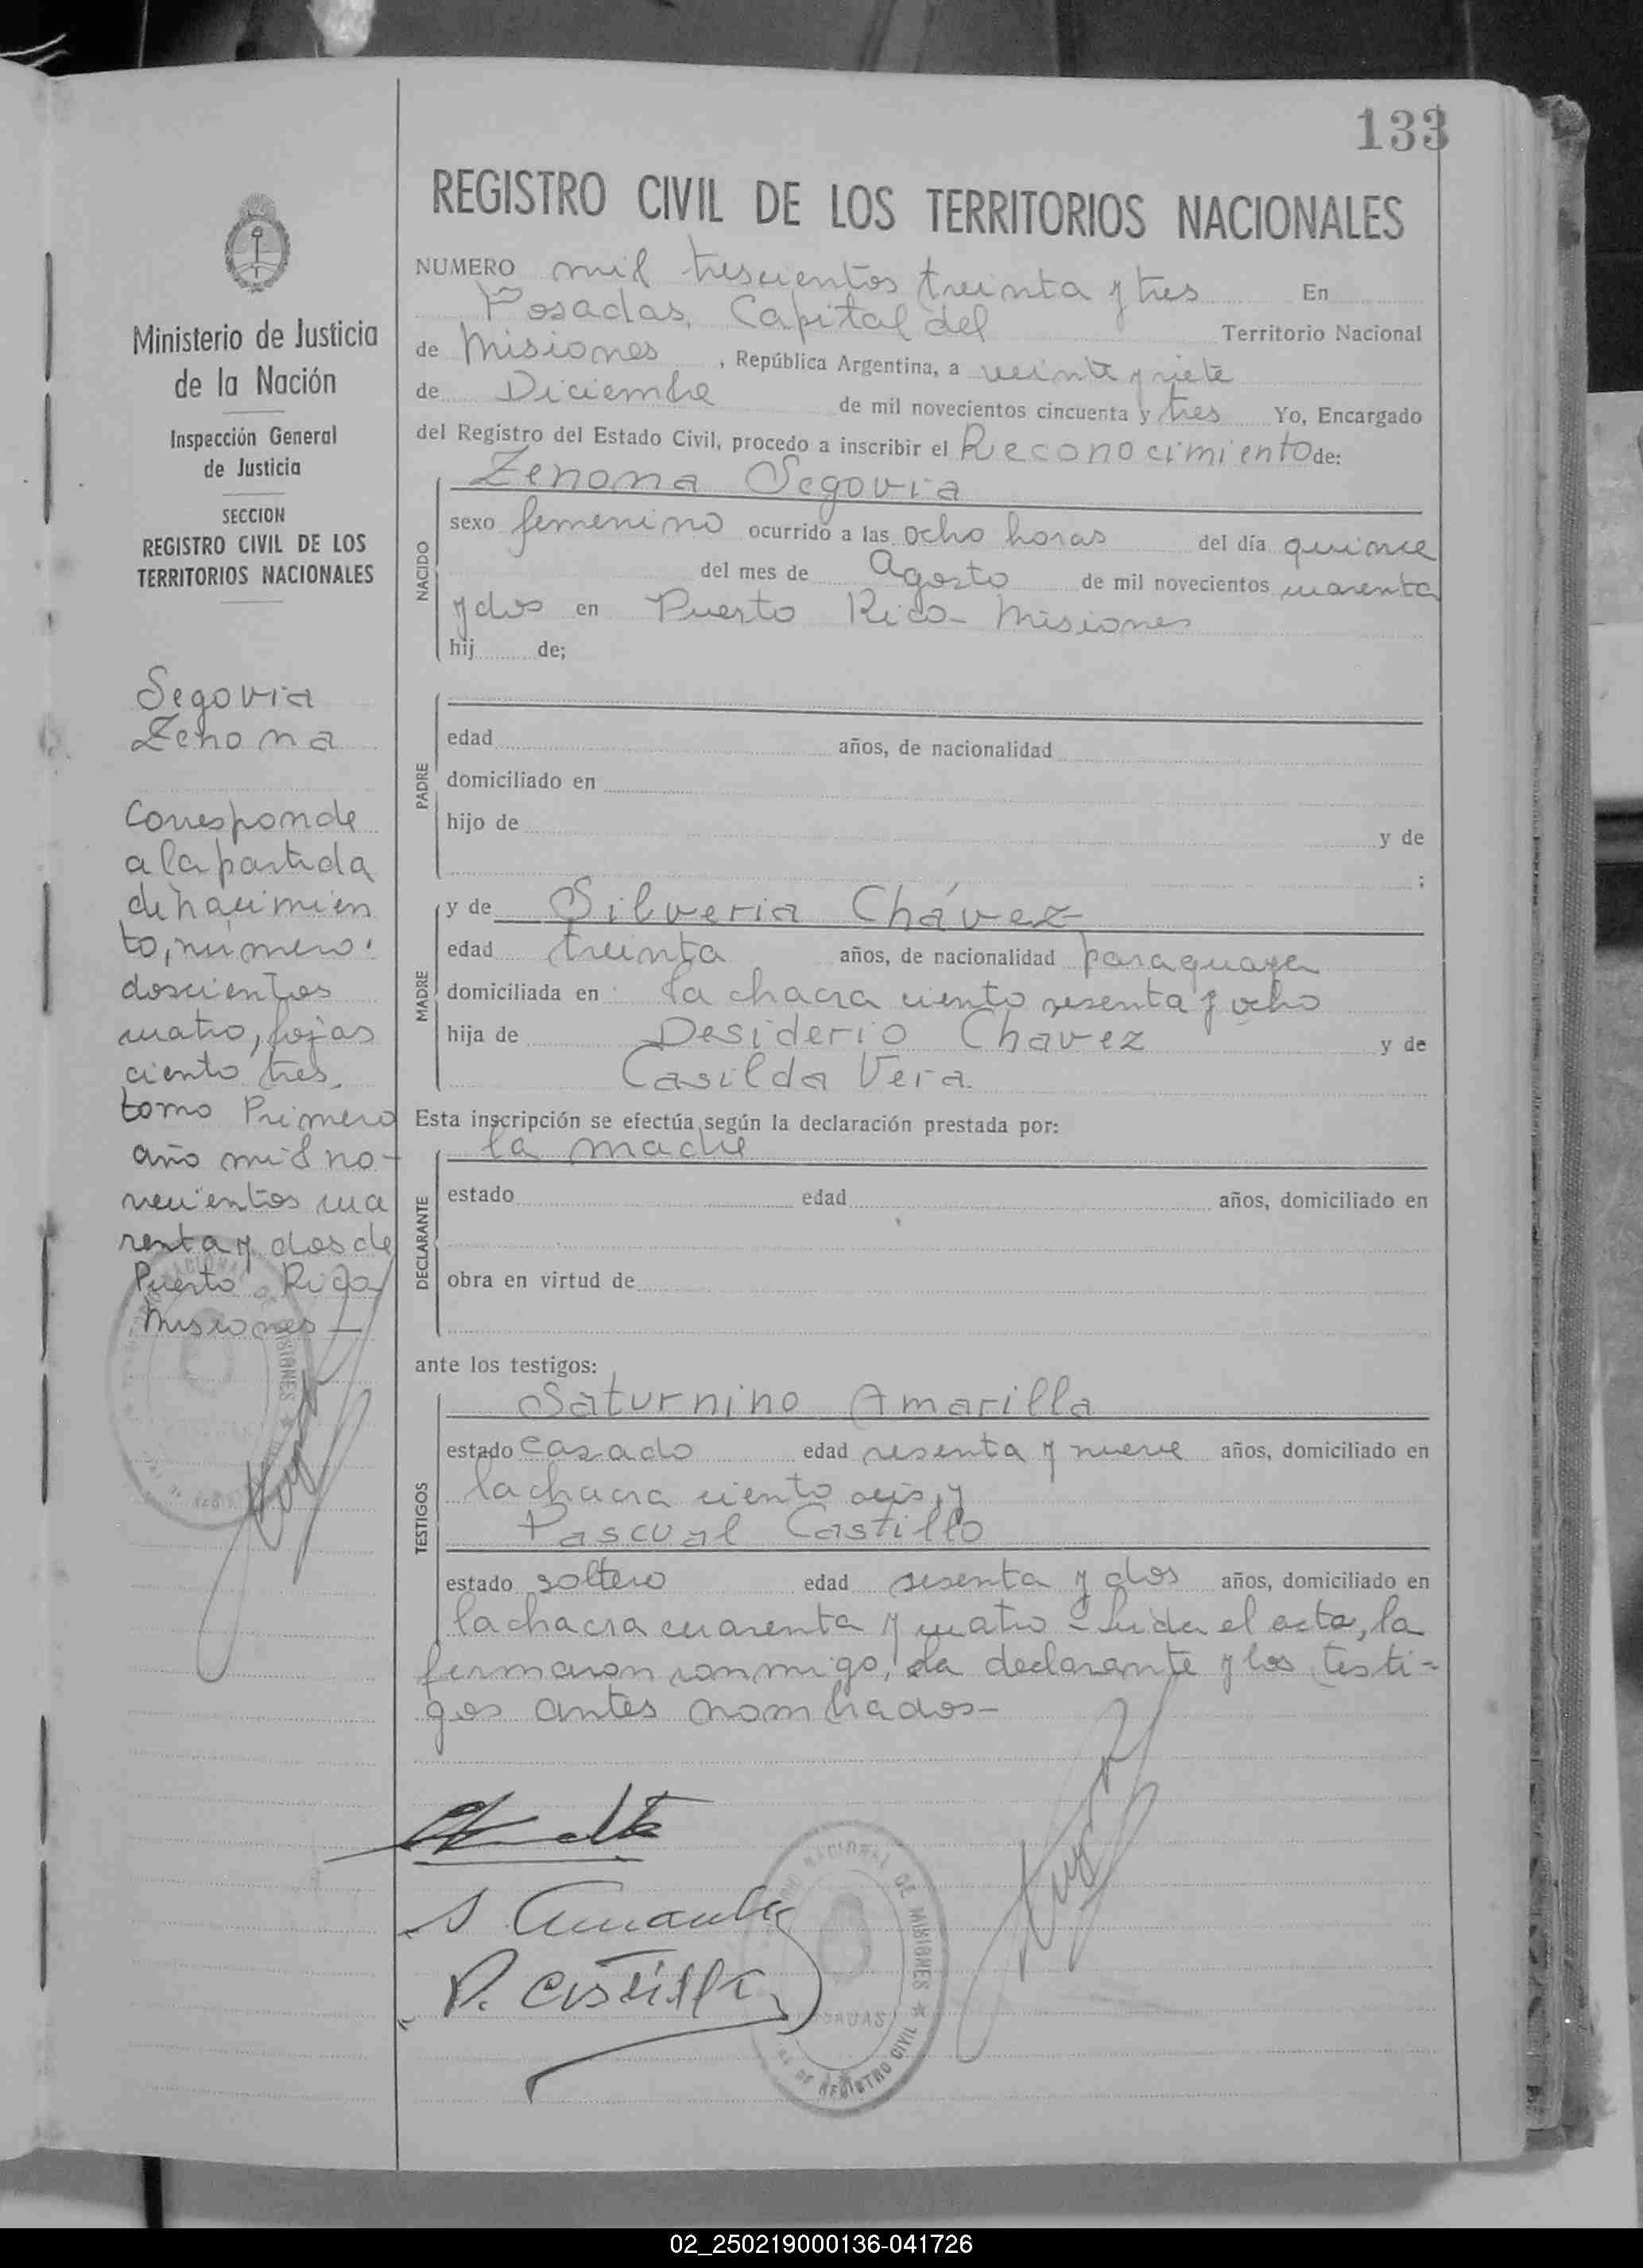 133
REGISTRO CIVIL DE LOS TERRITORIOS NACIONALES
NUMERO mil trescientos treinta y tres En
Posadas, Capital del Territorio Nacional
de Misiones, República Argentina, a veinte y siete
de Diciembre de mil novecientos cincuenta y tres Yo, Encargado
del Registro del Estado Civil, procedo a inscribir el Reconocimiento de:
NACIDO
Zenona Segovia
sexo femenino ocurrido a las ocho horas del día quince
del mes de Agosto de mil novecientos cuarenta
y dos en Puerto Rico - Misiones
hij de;
PADRE
edad años, de nacionalidad
domiciliado en
hijo de y de
;
MADRE
y de Silveria Chávez
edad treinta años, de nacionalidad paraguaya
domiciliada en la chacra ciento sesenta y ocho
hija de Desiderio Chavez y de
Casilda Vera.
Esta inscripción se efectúa según la declaración prestada por:
DECLARANTE
la madre
estado edad años, domiciliado en
obra en virtud de
ante los testigos:
TESTIGOS
Saturnino Amarilla
estado casado edad sesenta y nueve años, domiciliado en
la chacra ciento seis, y
Pascual Castillo
estado soltero edad sesenta y dos años, domiciliado en
la chacra cuarenta y cuatro - Leida el acta, la
firmaron conmigo, la declarante y los testi=
gos antes nombrados-
S Amarilla
P. Castillo
NACIONAL DE MISIONES
DE REGISTRO CIVIL
Ministerio de Justicia
de la Nación
Inspección General
de Justicia
SECCION
REGISTRO CIVIL DE LOS
TERRITORIOS NACIONALES
Segovia
Zenona
Corresponde
a la partida
de nacimien
to, número:
doscientos
cuatro, fojas
ciento tres,
tomo Primero
año mil no-
vecientos cua
renta y dos de
Puerto Rico
Misiones -
MISIONES
02_250219000136-041726